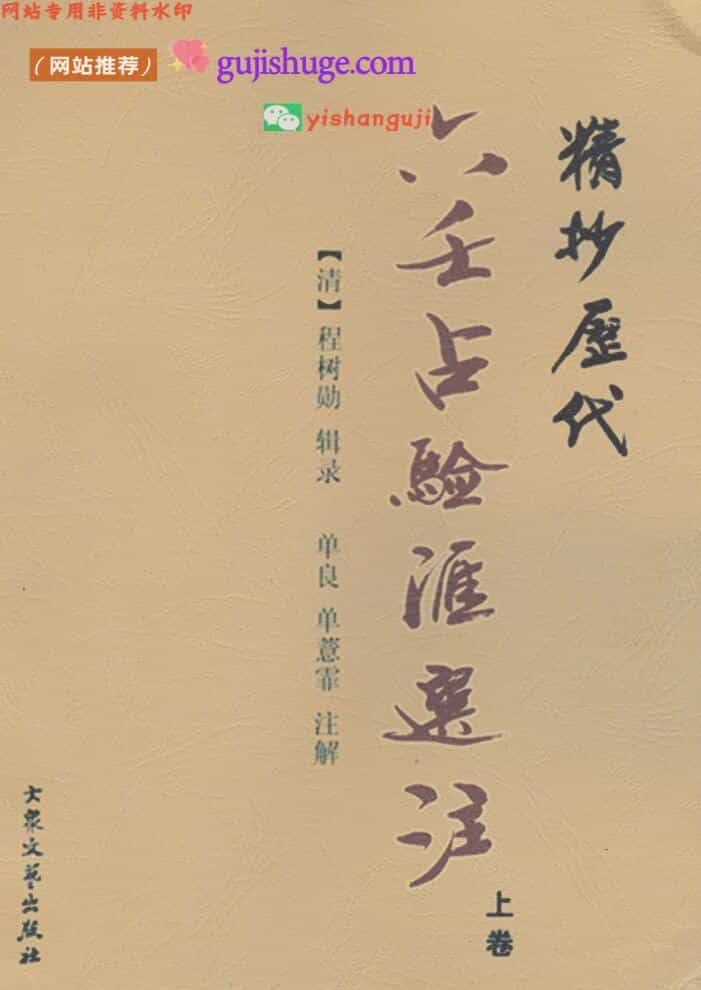 网站专用非资料水印
（网站推荐）
gujishuge.com
yishanguji
精抄歷代
六壬占驗滙選注
上卷
【清】程树勋 辑录 单良 单薏霏 注解
大衆文藝出版社